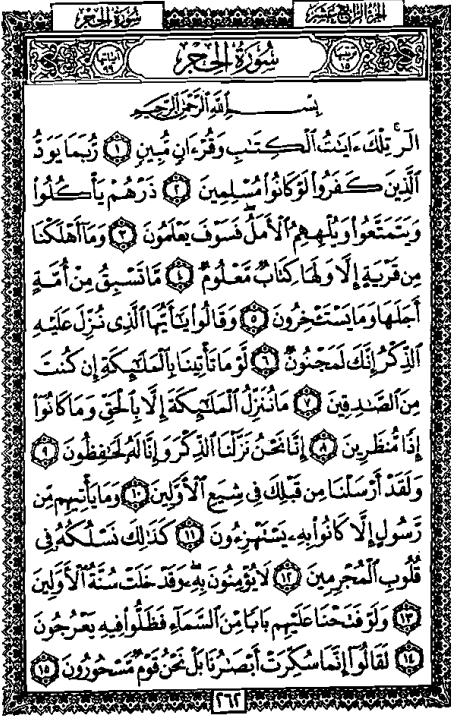 سُورَةُ الْحِجْرِ الجُزْءُ الرَّابِعَ عَشَرَ
سُورَةُ الْحِجْرِ
بِسْمِ اللَّهِ الرَّحْمَٰنِ الرَّحِيمِ
الٓر ۚ تِلْكَ ءَايَٰتُ ٱلْكِتَٰبِ وَقُرْءَانٍ مُّبِينٍ ١ رُّبَمَا يَوَدُّ
ٱلَّذِينَ كَفَرُوا۟ لَوْ كَانُوا۟ مُسْلِمِينَ ٢ ذَرْهُمْ يَأْكُلُوا۟
وَيَتَمَتَّعُوا۟ وَيُلْهِهِمُ ٱلْأَمَلُ ۖ فَسَوْفَ يَعْلَمُونَ ٣ وَمَآ أَهْلَكْنَا
مِن قَرْيَةٍ إِلَّا وَلَهَا كِتَابٌ مَّعْلُومٌ ٤ مَّا تَسْبِقُ مِنْ أُمَّةٍ
أَجَلَهَا وَمَا يَسْتَـْٔخِرُونَ ٥ وَقَالُوا۟ يَٰٓأَيُّهَا ٱلَّذِى نُزِّلَ عَلَيْهِ
ٱلذِّكْرُ إِنَّكَ لَمَجْنُونٌ ٦ لَّوْ مَا تَأْتِينَا بِٱلْمَلَٰٓئِكَةِ إِن كُنتَ
مِنَ ٱلصَّٰدِقِينَ ٧ مَا نُنَزِّلُ ٱلْمَلَٰٓئِكَةَ إِلَّا بِٱلْحَقِّ وَمَا كَانُوٓا۟
إِذًا مُّنظَرِينَ ٨ إِنَّا نَحْنُ نَزَّلْنَا ٱلذِّكْرَ وَإِنَّا لَهُۥ لَحَٰفِظُونَ ٩
وَلَقَدْ أَرْسَلْنَا مِن قَبْلِكَ فِى شِيَعِ ٱلْأَوَّلِينَ ١٠ وَمَا يَأْتِيهِم مِّن
رَّسُولٍ إِلَّا كَانُوا۟ بِهِۦ يَسْتَهْزِءُونَ ١١ كَذَٰلِكَ نَسْلُكُهُۥ فِى
قُلُوبِ ٱلْمُجْرِمِينَ ١٢ لَا يُؤْمِنُونَ بِهِۦ ۖ وَقَدْ خَلَتْ سُنَّةُ ٱلْأَوَّلِينَ
١٣ وَلَوْ فَتَحْنَا عَلَيْهِم بَابًا مِّنَ ٱلسَّمَآءِ فَظَلُّوا۟ فِيهِ يَعْرُجُونَ
١٤ لَقَالُوٓا۟ إِنَّمَا سُكِّرَتْ أَبْصَٰرُنَا بَلْ نَحْنُ قَوْمٌ مَّسْحُورُونَ ١٥
٢٦٢